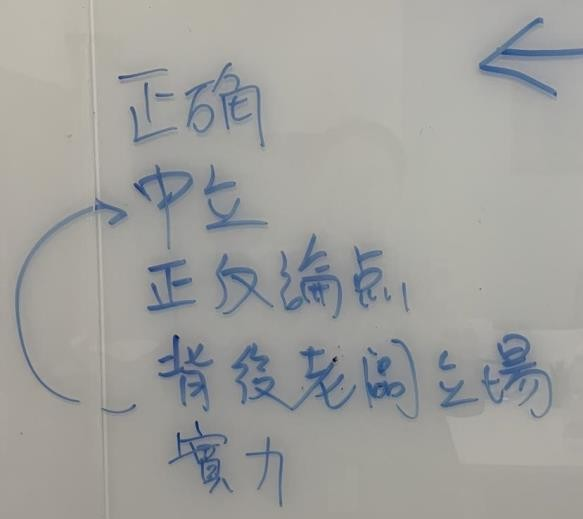 正确
中立
正反論点
背後老闆立場
實力